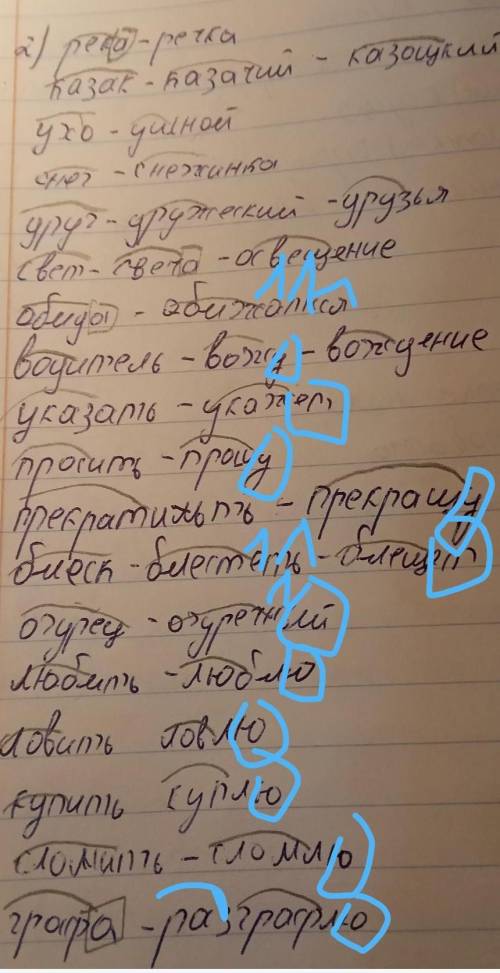 2) река - речка
казак - казачий - казацкий
ухо - ушной
снег - снежинка
друг - дружеский - друзья
свет - света - освещение
обида - обижаться
водитель - вожу - вождение
указать - укажет
просить - прошу
прекратить - прекращу
блеск - блестеть - блещет
огурец - огуречный
любить - люблю
ловить ловлю
купить куплю
сломить - сломлю
графа - разграфлю